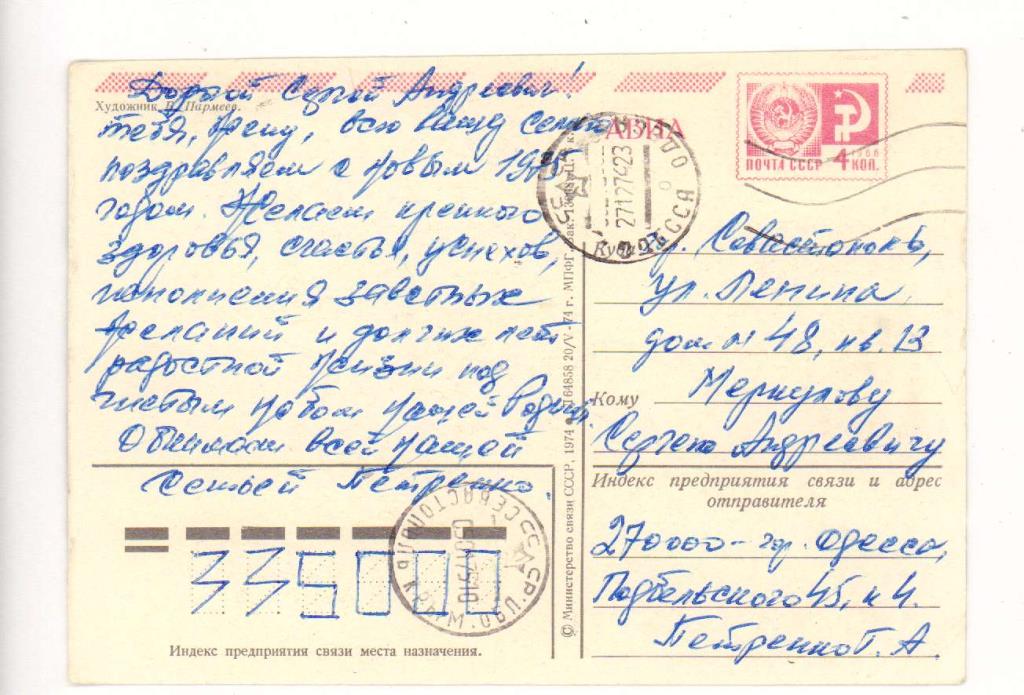 Художник В. Пармеев.
Дорогой Сергей Андреевич!
тебя, Лену, всю вашу семью
поздравляем с новым 1975
годом. Желаем крепкого
здоровья, счастья, успехов,
исполнения заветных
желаний и долгих лет
радостной жизни под
чистым небом нашей Родины.
Обнимаем всей нашей
семьей Петренко.
335000
Индекс предприятия связи места назначения.
© Министерство связи СССР. 1974
164858 20/V-74 г. МПФГ.
АВИА
ПОЧТА СССР 4 КОП.
1966
ОДЕССА
271274 23
Куда г. Севастополь,
ул. Ленина,
дом № 48, кв. 13
Кому Меркулову
Сергею Андреевичу
Индекс предприятия связи и адрес
отправителя
270000 - гор. Одесса,
Подбельского 45, к 4.
Петренко Г. А.
СЕВАСТОПОЛЬ КРЫМ. ОБЛ.
СССР